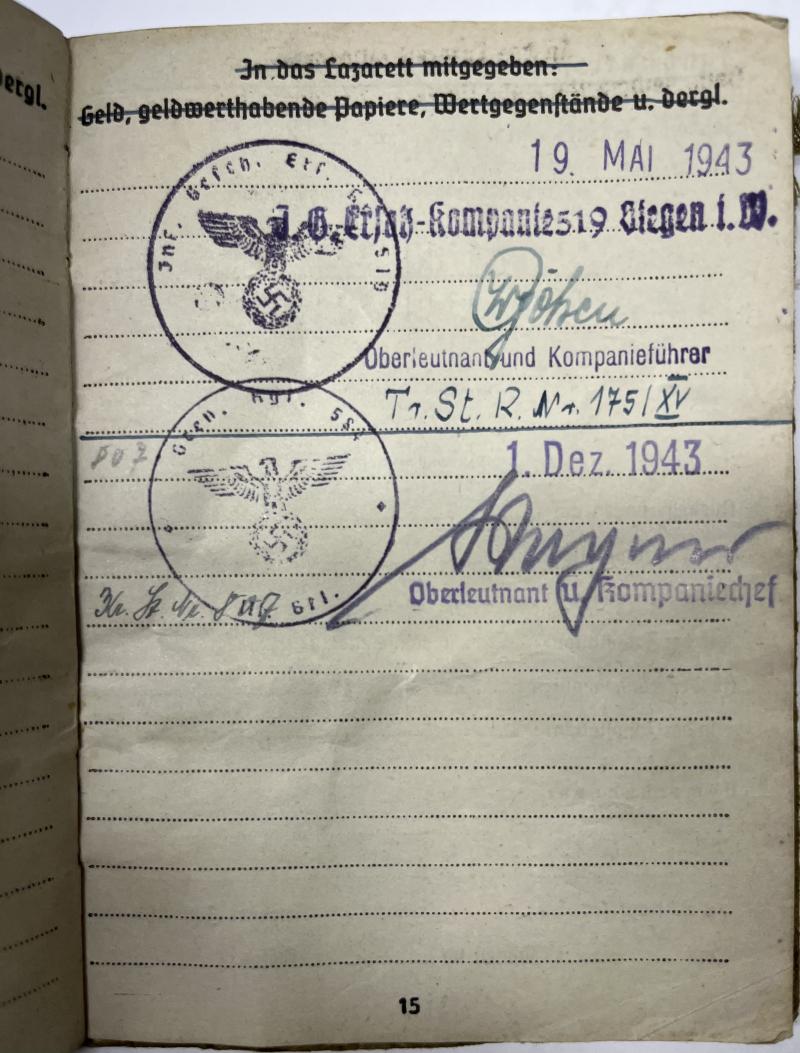 dergl.
In das Lazarett mitgegeben:
Geld, geldwerthabende Papiere, Wertgegenstände u. dergl.
19. MAI 1943
Inf. Gesch. Ers. 519
J. G. Ersatz-Kompanie 519 Siegen i. W.
Oberleutnant und Kompanieführer
Tr. St. R. Nr. 175/XV
Gren.
1. Dez. 1943
Oberleutnant u. Kompaniechef
15